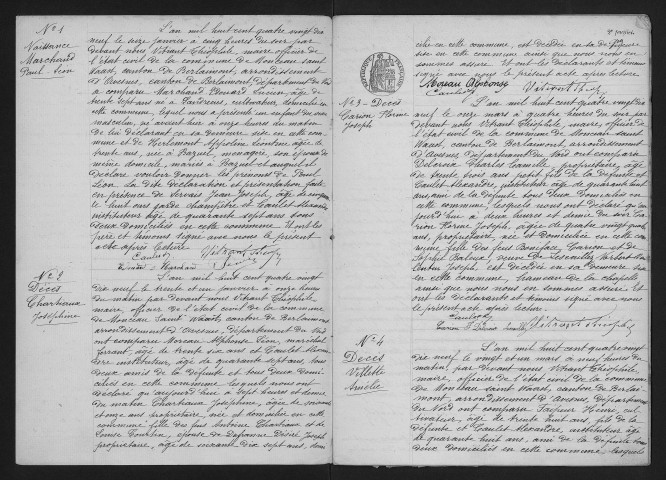 N° 1
Naissance
Marchand
Paul Léon
L'an mil huit cent quatre vingt dix
neuf le seize janvier à cinq heures du soir par
devant nous, Vitrant Théophile, maire officier de
l'état civil de la commune de Monceau Saint
Waast, canton de Berlaimont, arrondissement
d'Avesnes, canton de Berlaimont, Département du Nord
a comparu Marchand Edouard Lucien, âgé de
trente sept ans né à Taisnières, cultivateur domicilié en
cette commune, lequel nous a présenté un enfant du sexe
masculin, né avant hier à onze heures du matin
de lui déclarant en sa demeure sise en cette com-
mune et de Herlemont Appoline Léontine âgée de
trente ans, née à Bazuel, ménagère, son épouse de
même domicile, mariés à Bazuel et auquel il
déclare vouloir donner les prénoms de Paul
Léon. La dite déclaration et présentation faites
en présence de Servais Jean Joseph, âgé de
huit ans garde champêtre et Caulet Alexandre
instituteur âgé de quarante sept ans tous
deux domiciliés en cette commune. Et ont les
père et témoins signé avec nous le présent
acte après lecture.
Caulet Vitrant Théop
E. Marchand
N° 2
Décès
Charbaux
Joséphine
L'an mil huit cent quatre vingt
dix neuf le trente et un janvier à onze heures
du matin par devant nous Vitrant Théophile
maire, officier de l'état civil de la commune
de Monceau Saint Waast, canton de Berlaimont
arrondissement d'Avesnes, département du Nord
ont comparu Moreau Alphonse Léon, maréchal
ferrant, âgé de trente six ans et Caulet Alexan-
dre instituteur, âgé de quarante sept ans, tous
deux amis de la défunte et tous deux domi-
ciliés en cette commune lesquels nous ont
déclaré qu'aujourd'hui à sept heures et demie
du matin Charbaux Joséphine, âgée de soixante
et onze ans propriétaire, née et domiciliée en cette
commune fille des feus Antoine Charbaux et de
Louise Courtin, épouse de Dafranne Désiré Joseph
propriétaire, âgé de soixante dix sept ans, domi
cilié en cette commune, est décédée en sa demeure
sise en cette commune ainsi que nous nous en
sommes assuré. Et ont les déclarants et témoins
signé avec nous le présent acte après lecture
Moreau Alphonse
Caulet Vitrant Théop
N° 3 - Décès
Carion Florine
Joseph
L'an mil huit cent quatre vingt dix
neuf le onze mars à quatre heures du soir par
devant nous Vitrant Théophile, maire, officier de
l'état civil de la commune de Monceau Saint
Waast, canton de Berlaimont, arrondissement
d'Avesnes Département du Nord ont comparu
Delcroix Charles Camille, propriétaire, âgé
de trente trois ans petit fils de la défunte et
Caulet Alexandre, instituteur âgé de quarante huit
ans, ami de la défunte tous deux domiciliés en
cette commune, lesquels nous ont déclaré qu'au
jourd'hui à deux heures et demie du soir Ca-
rion Florine Joseph, âgée de quatre vingt quatre
ans, propriétaire, née et domiciliée en cette com-
mune fille des feus Boniface Carion et de
Sophie Baleux, veuve de Lescaille Norbert Con
stantin Joseph, est décédée en sa demeure sise
en cette commune, hameau de la Chapelle
ainsi que nous nous en sommes assuré. Et
ont les déclarants et témoins signé avec nous
le présent acte après lecture.
Caulet
Vitrant Théop
N° 4
Décès
Villette
Amélie
L'an mil huit cent quatre vingt
dix neuf le vingt et un mars à neuf heures du
matin, par devant nous Vitrant Théophile,
maire, officier de l'état civil de la commune
de Monceau Saint Waast, canton de Berlai-
mont, arrondissement d'Avesnes, département
du Nord ont comparu Jacquer Henri, cul-
tivateur, âgé de trente huit ans, fils de la
défunte et Caulet Alexandre, instituteur âgé
de quarante huit ans, ami de la défunte tous
deux domiciliés en cette commune, lesquels